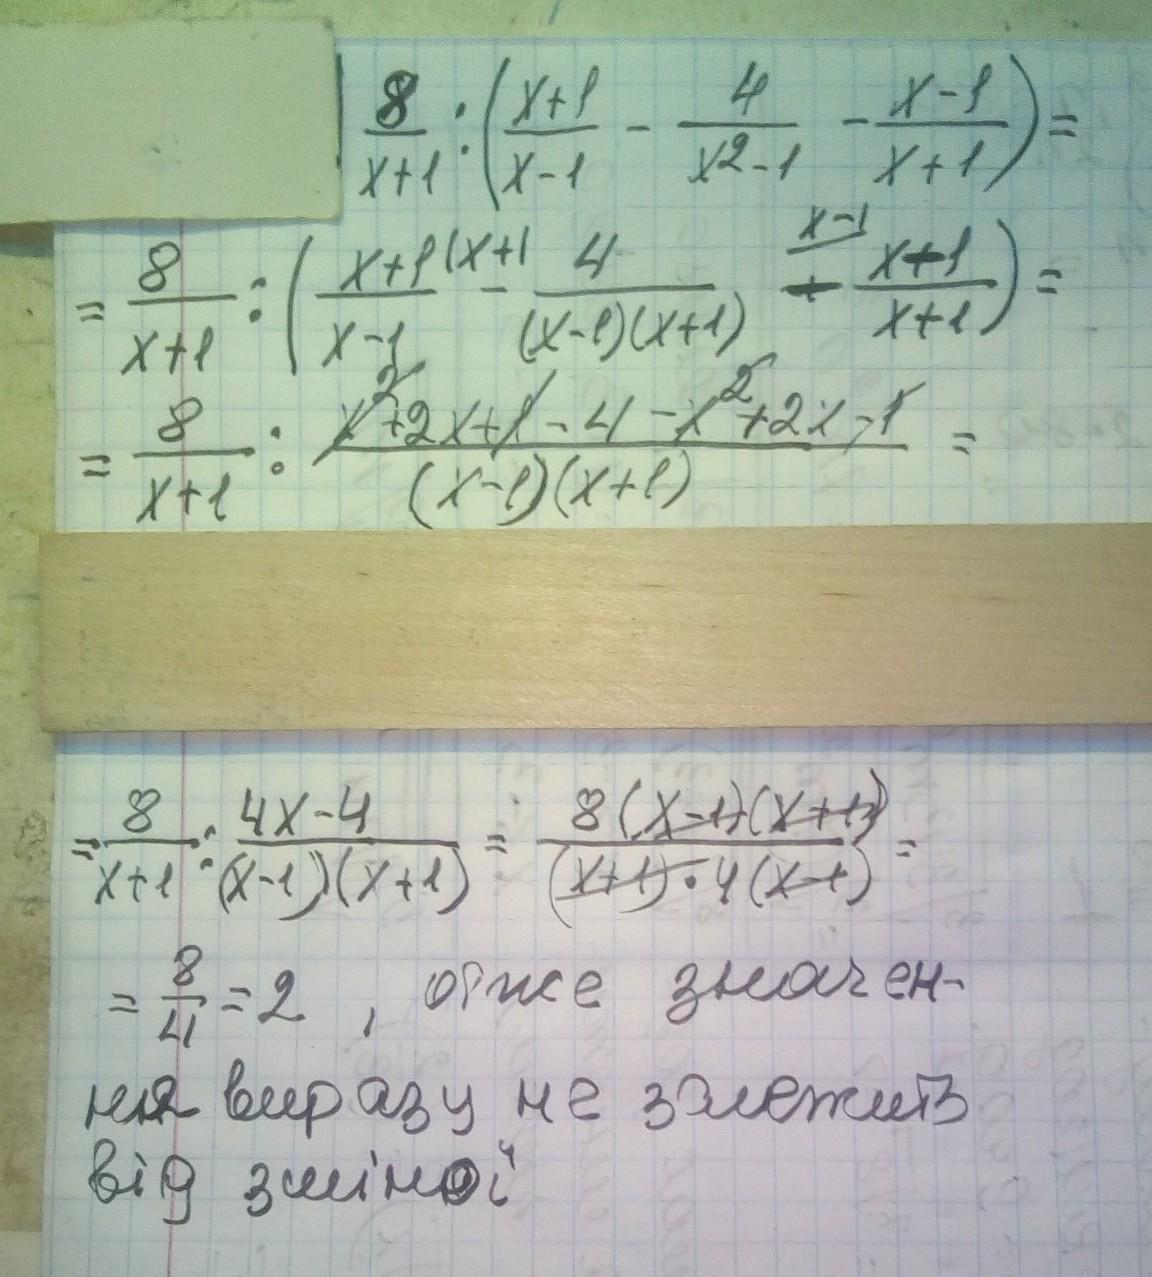 8/(x+1) : ((x+1)/(x-1) - 4/(x²-1) - (x-1)/(x+1)) =
= 8/(x+1) : ((x+1)/(x-1) (x+1 - 4/((x-1)(x+1)) x-1/ - (x-1)/(x+1)) =
= 8/(x+1) : (x²+2x+1-4-x²+2x-1)/((x-1)(x+1)) =
= 8/(x+1) : (4x-4)/((x-1)(x+1)) = 8(x-1)(x+1)/((x+1)·4(x-1)) =
= 8/4 = 2, отже значен-
ня виразу не залежить
від змінної